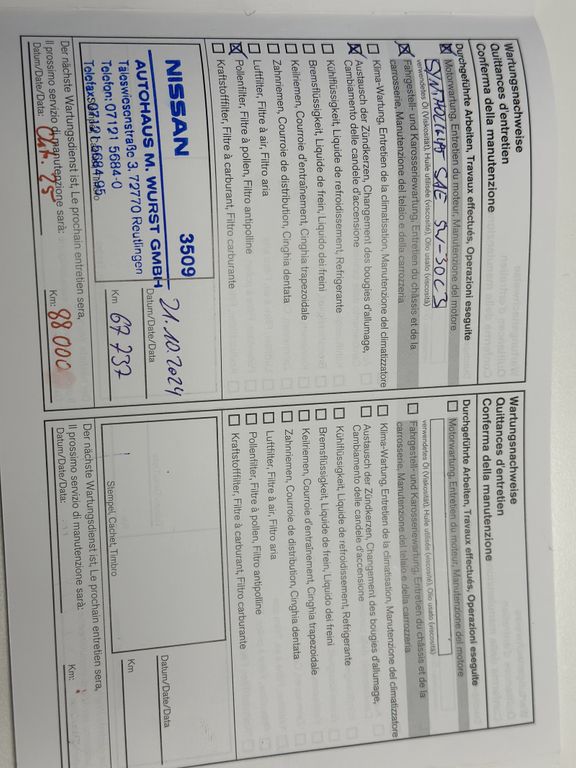 Wartungsnachweise
Quittances d'entretien
Conferma della manutenzione
Durchgeführte Arbeiten, Travaux effectués, Operazioni eseguite
Motorwartung, Entretien du moteur, Manutenzione del motore
verwendetes Öl (Viskosität), Huile utilisée (viscosité), Olio usato (viscosità)
SAE 5W-30 C3
Fahrgestell- und Karosseriewartung, Entretien du châssis et de la
carrosserie, Manutenzione del telaio e della carrozzeria
Klima-Wartung, Entretien de la climatisation, Manutenzione del climatizzatore
Austausch der Zündkerzen, Changement des bougies d'allumage,
Cambiamento delle candele d'accensione
Kühlflüssigkeit, Liquide de refroidissement, Refrigerante
Bremsflüssigkeit, Liquide de frein, Liquido dei freini
Keilriemen, Courroie d'entraînement, Cinghia trapezoidale
Zahnriemen, Courroie de distribution, Cinghia dentata
Luftfilter, Filtre à air, Filtro aria
Pollenfilter, Filtre à pollen, Filtro antipolline
Kraftstofffilter, Filtre à carburant, Filtro carburante
NISSAN 3509
AUTOHAUS M. WURST GMBH
Taleswiesenstraße 3, 72770 Reutlingen
Telefon: 07121 5684-0
Telefax: 07121 5684-95
21.10.2024
Datum/Date/Data
67 737
Km
Der nächste Wartungsdienst ist, Le prochain entretien sera,
Il prossimo servizio di manutenzione sarà:
Datum/Date/Data: Okt. 25
Km: 88 000
Wartungsnachweise
Quittances d'entretien
Conferma della manutenzione
Durchgeführte Arbeiten, Travaux effectués, Operazioni eseguite
Motorwartung, Entretien du moteur, Manutenzione del motore
verwendetes Öl (Viskosität), Huile utilisée (viscosité), Olio usato (viscosità)
Fahrgestell- und Karosseriewartung, Entretien du châssis et de la
carrosserie, Manutenzione del telaio e della carrozzeria
Klima-Wartung, Entretien de la climatisation, Manutenzione del climatizzatore
Austausch der Zündkerzen, Changement des bougies d'allumage,
Cambiamento delle candele d'accensione
Kühlflüssigkeit, Liquide de refroidissement, Refrigerante
Bremsflüssigkeit, Liquide de frein, Liquido dei freini
Keilriemen, Courroie d'entraînement, Cinghia trapezoidale
Zahnriemen, Courroie de distribution, Cinghia dentata
Luftfilter, Filtre à air, Filtro aria
Pollenfilter, Filtre à pollen, Filtro antipolline
Kraftstofffilter, Filtre à carburant, Filtro carburante
Datum/Date/Data
Km
Stempel, Cachet, Timbro
Der nächste Wartungsdienst ist, Le prochain entretien sera,
Il prossimo servizio di manutenzione sarà:
Datum/Date/Data:
Km: